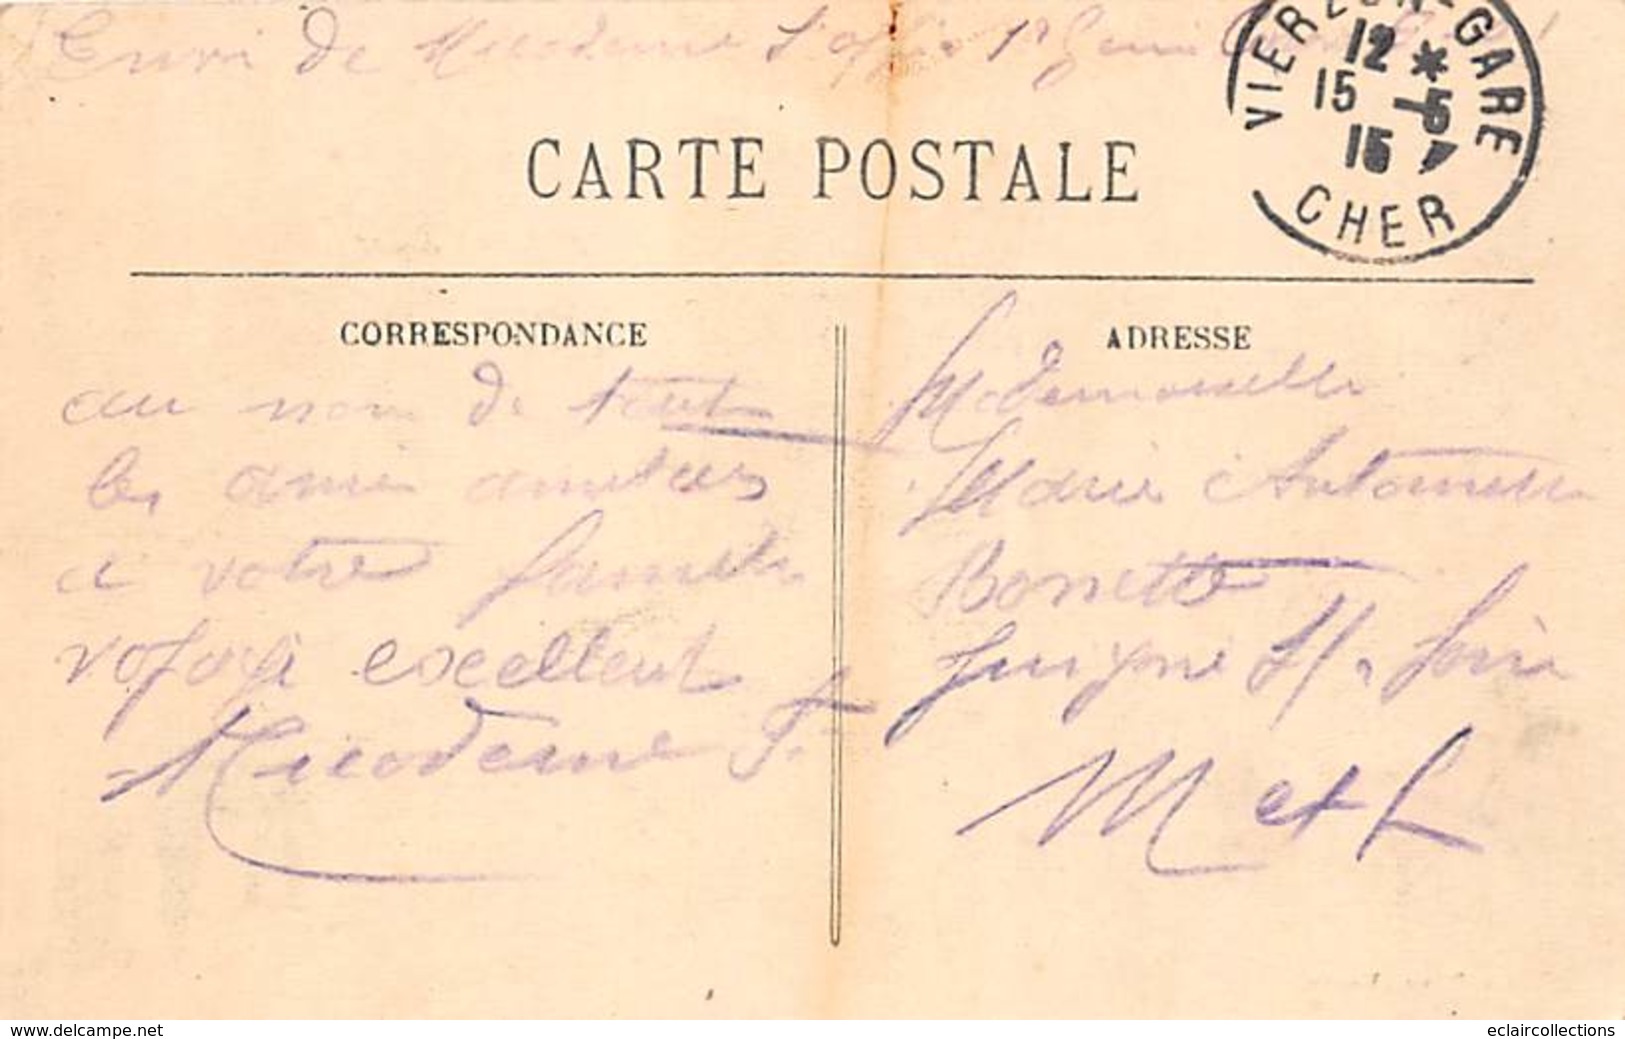 Envoi de Nicodeme
VIERZON-GARE
12 *
15 - 5
15
CHER
CARTE POSTALE
CORRESPONDANCE
au nom de tout
les amis amities
a votre famille
voyage excellent
Nicodeme F.
ADRESSE
Mademoiselle
Marie Antoinette
Bonette
M. Loire
M et L
www.delcampe.net
eclaircollections